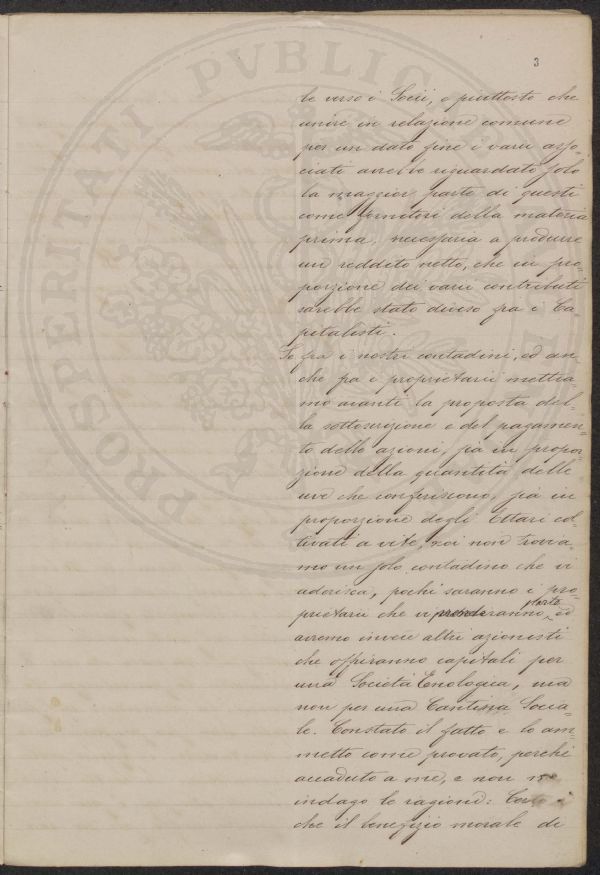 3
PROSPERITATI PVBLIC
le verso i Socii, o piuttosto che
unire in relazione comune
per un dato fine i varii asso-
ciati avrebbe riguardato solo
la maggior parte di questi
come fornitori della materia
prima, necessaria a produrre
un reddito netto, che in pro-
porzione dei varii contributi
sarebbe stato diviso fra i Ca-
pitalisti.
Se fra i nostri contadini, ed an-
che fra i proprietarii mettia-
mo avanti la proposta del-
la sottoscrizione e del pagamen-
to delle azioni, sia in propor-
zione della quantità delle
uve che conferiscono, sia in
proporzione degli Ettari col-
tivati a vite, noi non trovia-
mo un solo contadino che vi
aderisca, pochi saranno i pro-
prietarii che vi prenderanno parte ed
avremo invece altri azionisti
che offriranno capitali per
una Società Enologica, ma
non per una Cantina Socia-
le. Constato il fatto e lo am-
metto come provato, perchè
accaduto a me, e non ne
indago le ragioni: Certo è
che il benefizio morale di